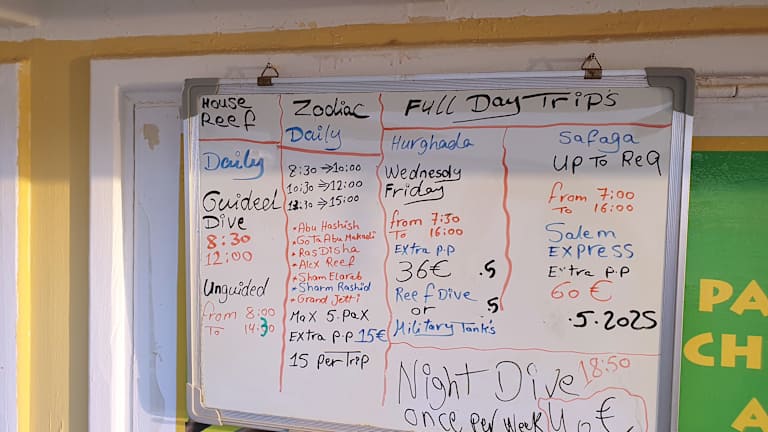 House
Reef
Daily
Guided
Dive
8:30
12:00
Unguided
from 8:00
To 14:30
Zodiac
Daily
8:30 → 10:00
10:30 → 12:00
13:30 → 15:00
• Abu Hashish
• Gota Abu Makadi
• Ras Disha
• Alex Reef
• Sham Elarab
• Sharm Rashid
• Grand Jetti
Max 5. Pax
Extra P.P 15€
15 Per Trip
Full Day Trip's
Hurghada
Wednesdy
Friday
from 7:30
To 16:00
Extra P.P
36€ .5
Reef Dive
or 5
Military Tank's
Safaga
Up To ReQ
from 7:00
To 16:00
Salem
Express
Extra P.P
60 €
.5.2025
Night Dive 18:50
once per week
€
PA
CH
A